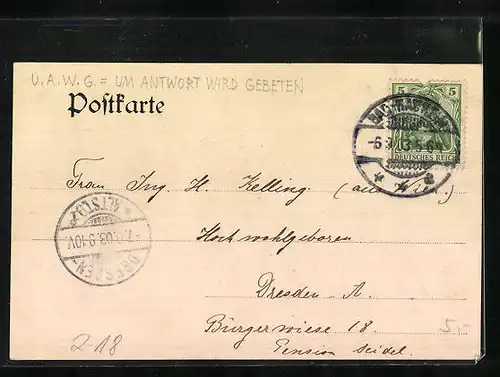 U. A. W. G. = UM ANTWORT WIRD GEBETEN
Postkarte
5 5
DEUTSCHES REICH
-6.
3 5-6
Frau Ing. H. Kelling
Hochwohlgeboren
Dresden A.
Bürgerwiese 18.
Pension Seidel.
DRESDEN
ALTST.
03. 9-10V
2-18
5,-